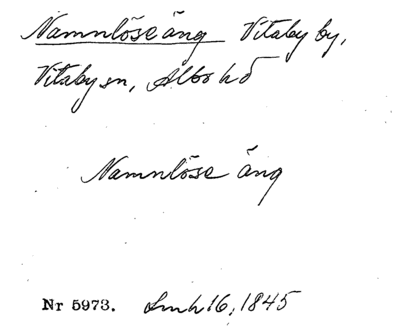 Namnlöse äng Vitaby by,
Vitaby sn, Albo hd
Namnlöse äng
Nr 5973. Lmh 16, 1845